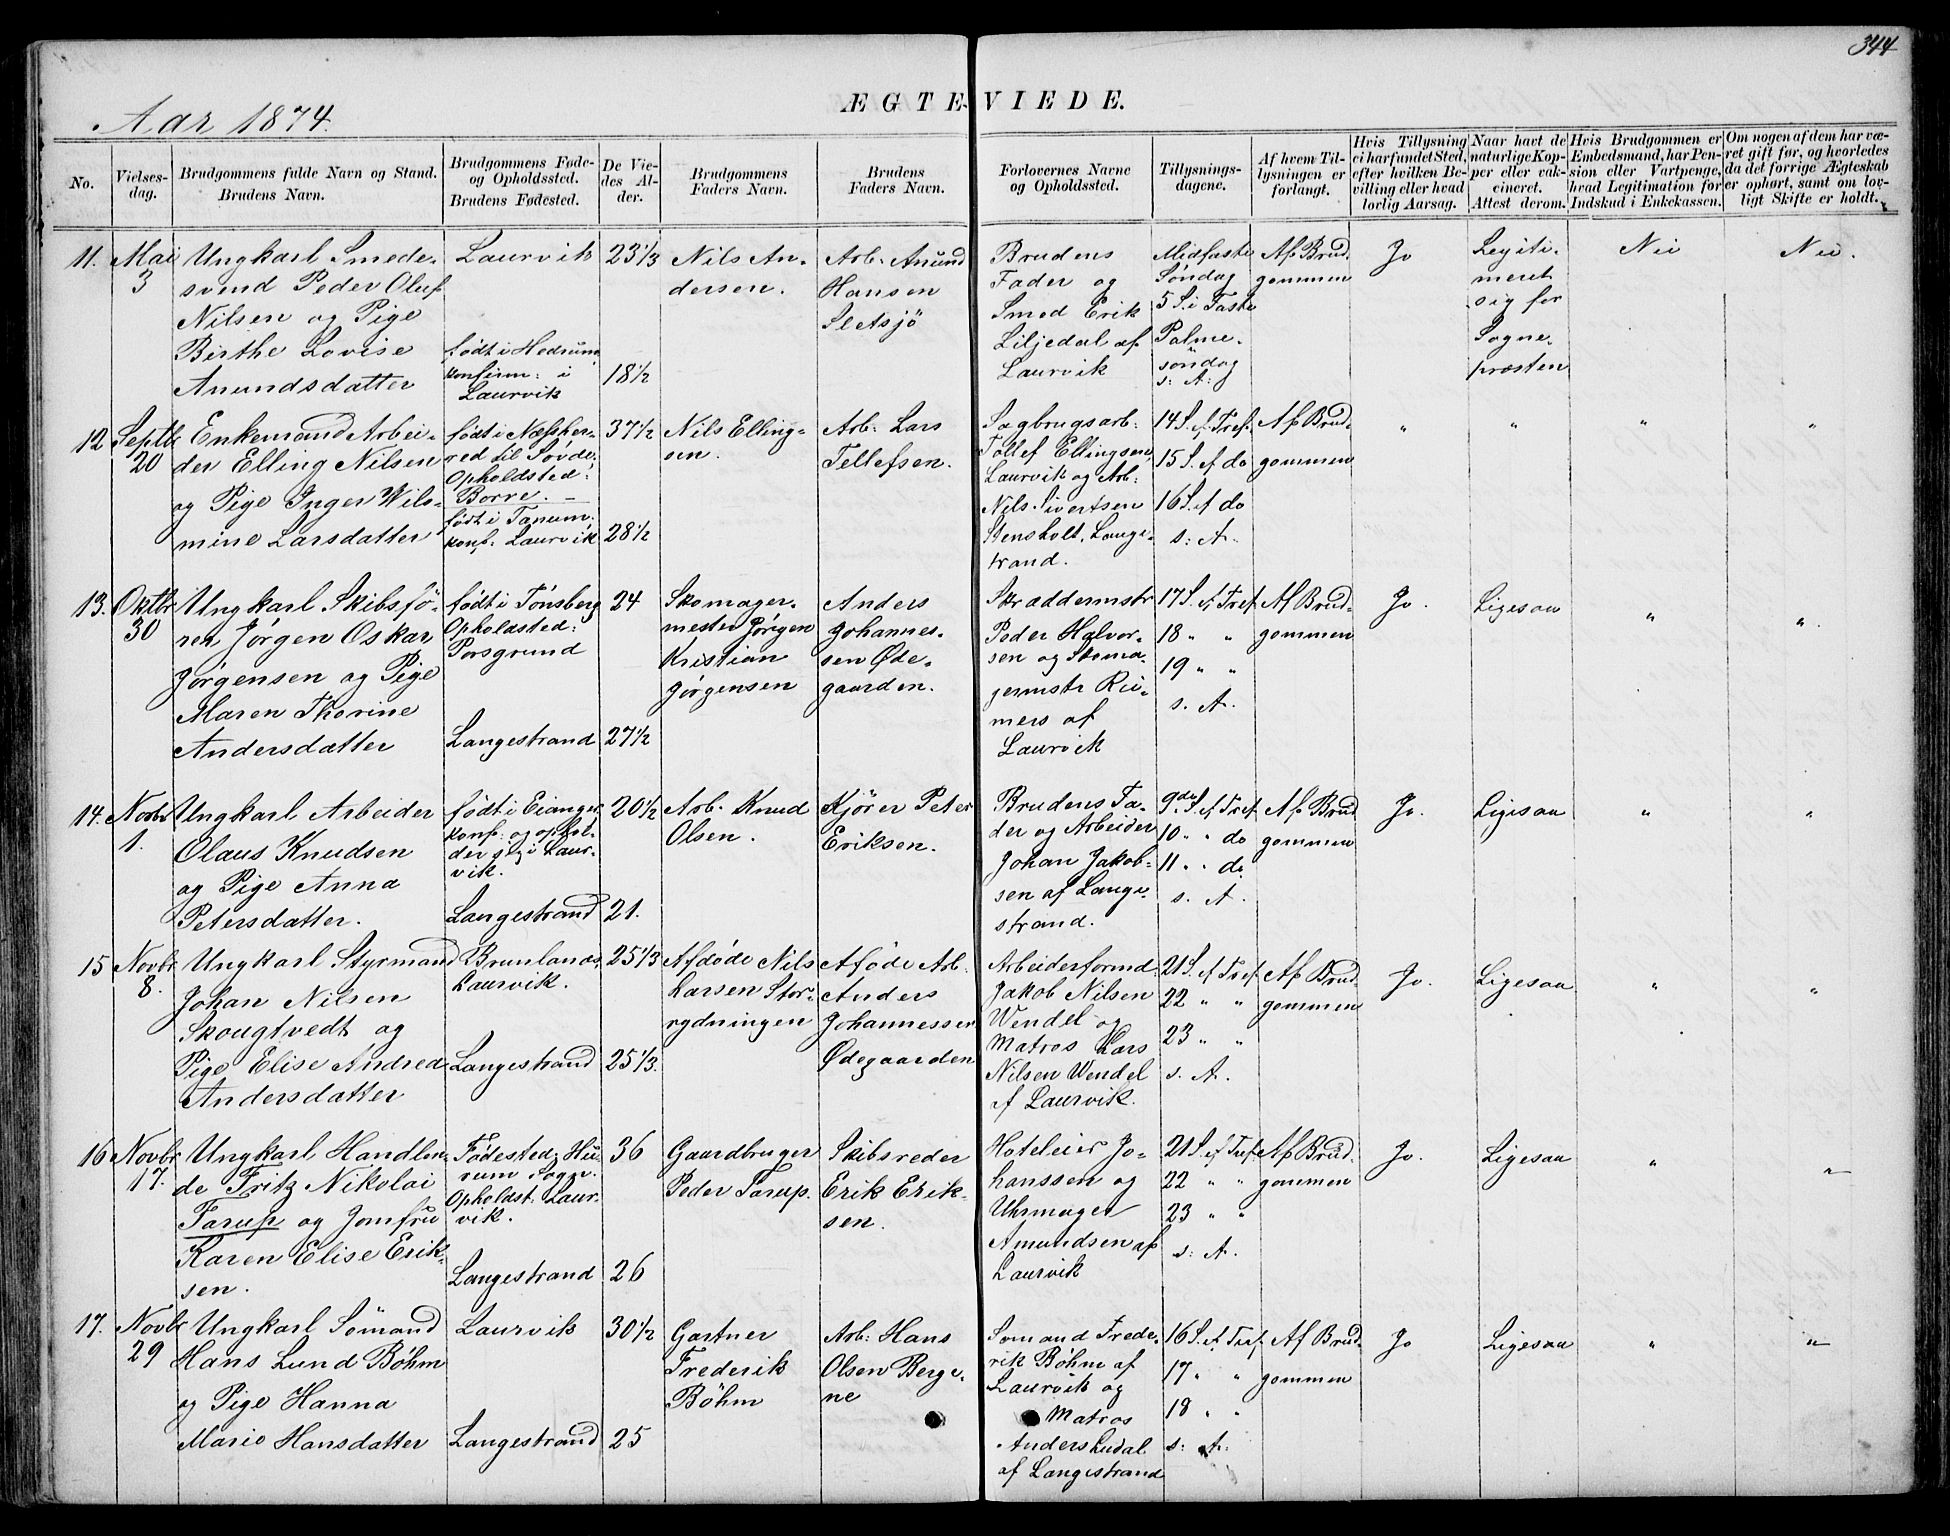 344
Aar 1874.
ÆGTEVIEDE.
No.
Vielses-
dag.
Brudgommens fulde Navn og Stand.
Brudens Navn.
Brudgommens Føde-
og Opholdssted.
Brudens Fødested.
De Vie-
des Al-
der.
Brudgommens
Faders Navn.
Brudens
Faders Navn.
Forlovernes Navne
og Opholdssted.
Tillysnings-
dagene.
Af hvem Til-
lysningen er
forlangt.
Hvis Tillysning
ei har fundet Sted,
efter hvilken Be-
villing eller hvad
lovlig Aarsag.
Naar havt de
naturlige Kop-
per eller vak-
cineret.
Attest derom.
Hvis Brudgommen er
Embedsmand, har Pen-
sion eller Vartpenge,
hvad Legitimation for
Indskud i Enkekassen.
Om nogen af dem har væ-
ret gift før, og hvorledes
da det forrige Ægteskab
er ophørt, samt om lov-
ligt Skifte er holdt.
11.
Mai
3
Ungkarl Smede-
svend Peder Oluf
Nilsen og Pige
Birthe Lovise
Anundsdatter
Laurvik
født i Hedrum
konfirm: i
Laurvik
23 1/3
18 1/2
Nils An-
dersen.
Arb. Anund
Hansen
Sletsjö
Brudens
Fader og
Smed Erik
Liljedal af
Laurvik
Midfaste
Søndag
5 S. i Faste
Palme-
søndag
s: A:
Af Brud-
gommen
Jo
Legiti-
meret
sig for
Sogne-
præsten
Nei
Nei.
12
Septbr
20
Enkemand Arbei-
der Elling Nilsen
og Pige Inger Wils-
mine Larsdatter
født i Næsher-
red til Sövde.
Opholdsted:
Borre.
født i Tanum.
konf. Laurvik
37 1/2
28 1/2
Nils Elling-
sen.
Arb: Lars
Tellefsen.
Sagbrugsarb:
Tollef Ellingsen,
Laurvik og Arb:
Nils Sivertsen
Stensholt, Lange-
strand.
14 S. ef Tref.
15 S. ef do
16 S. ef do
s: A.
Af Brud-
gommen
"
"
"
"
13.
Oktbr
30
Ungkarl Skibsfö-
rer Jørgen Oskar
Jørgensen og Pige
Maren Thorine
Andersdatter
født i Tønsberg
Opholdsted:
Porsgrund
Langestrand
24
27 1/2
Skomager-
mester Jörgen
Kristian
Jørgensen
Anders
Johannes-
sen Øde-
gaarden.
Skræddermstr
Peder Halvor-
sen og Skoma-
germstr Rei-
mers af
Laurvik
17 S. ef Tref
18 " "
19 " "
s. A.
Af Brud-
gommen
Jo.
Ligesaa
"
"
14.
Novbr
1.
Ungkarl Arbeider
Olaus Knudsen
og Pige Anna
Petersdatter.
født i Eianger
konf: og ophol-
der sig i Laur-
vik.
Langestrand
20 1/2
21.
Arb. Knud
Olsen.
Kjörer Peter
Eriksen.
Brudens Fa-
der og Arbeider
Johan Jakob-
sen af Lange-
strand.
9de S. ef Tref
10 " " do
11 " " do
s. A.
Af Brud
gommen
Jo.
Ligesaa
"
"
15
Novbr
8.
Ungkarl Styrmand
Johan Nilsen
Skougtvedt og
Pige Elise Andrea
Andersdatter
Brunlanæs,
Laurvik.
Langestrand
25 1/3
25 1/3.
Afdøde Nils
Larsen Stor-
rydningen
Aføde Arb.
Anders
Johannessen
Ødegaarden
Arbeiderformd:
Jakob Nilsen
Wendel og
Matros Lars
Nilsen Wendel
af Laurvik.
21 S. ef Tref
22 " "
23 " "
s. A.
Af Brud-
gommen
Jo.
Ligesaa
"
"
16
Novbr
17.
Ungkarl Handlen-
de Fritz Nikolai
Farup og Jomfru
Karen Elise Erik-
sen.
Fødested: Hu-
rum Sogn.
Opholdst: Laur-
vik.
Langestrand
36
26
Gaardbruger
Peder Farup.
Skibsreder
Erik Erik-
sen.
Hoteleier Jo-
hanssen og
Uhrmager
Amundsen af
Laurvik
21 S. ef Tref.
22 " "
23 " "
s: A.
Af Brud-
gommen
Jo.
Ligesaa
"
"
17.
Novbr
29
Ungkarl Sømand
Hans Lund Bøhm
og Pige Hanna
Marie Hansdatter
Laurvik
Langestrand
30 1/2
25
Gartner
Frederik
Bøhm
Arb: Hans
Olsen Berge-
ne
Sømand Frede-
rik Bøhm af
Laurvik og
Matros
Anders Ludal
af Langestrand
16 S. ef Tref
17 " "
18 " "
s: A.
Af Brud-
gommen
Jo
Ligesaa
"
"